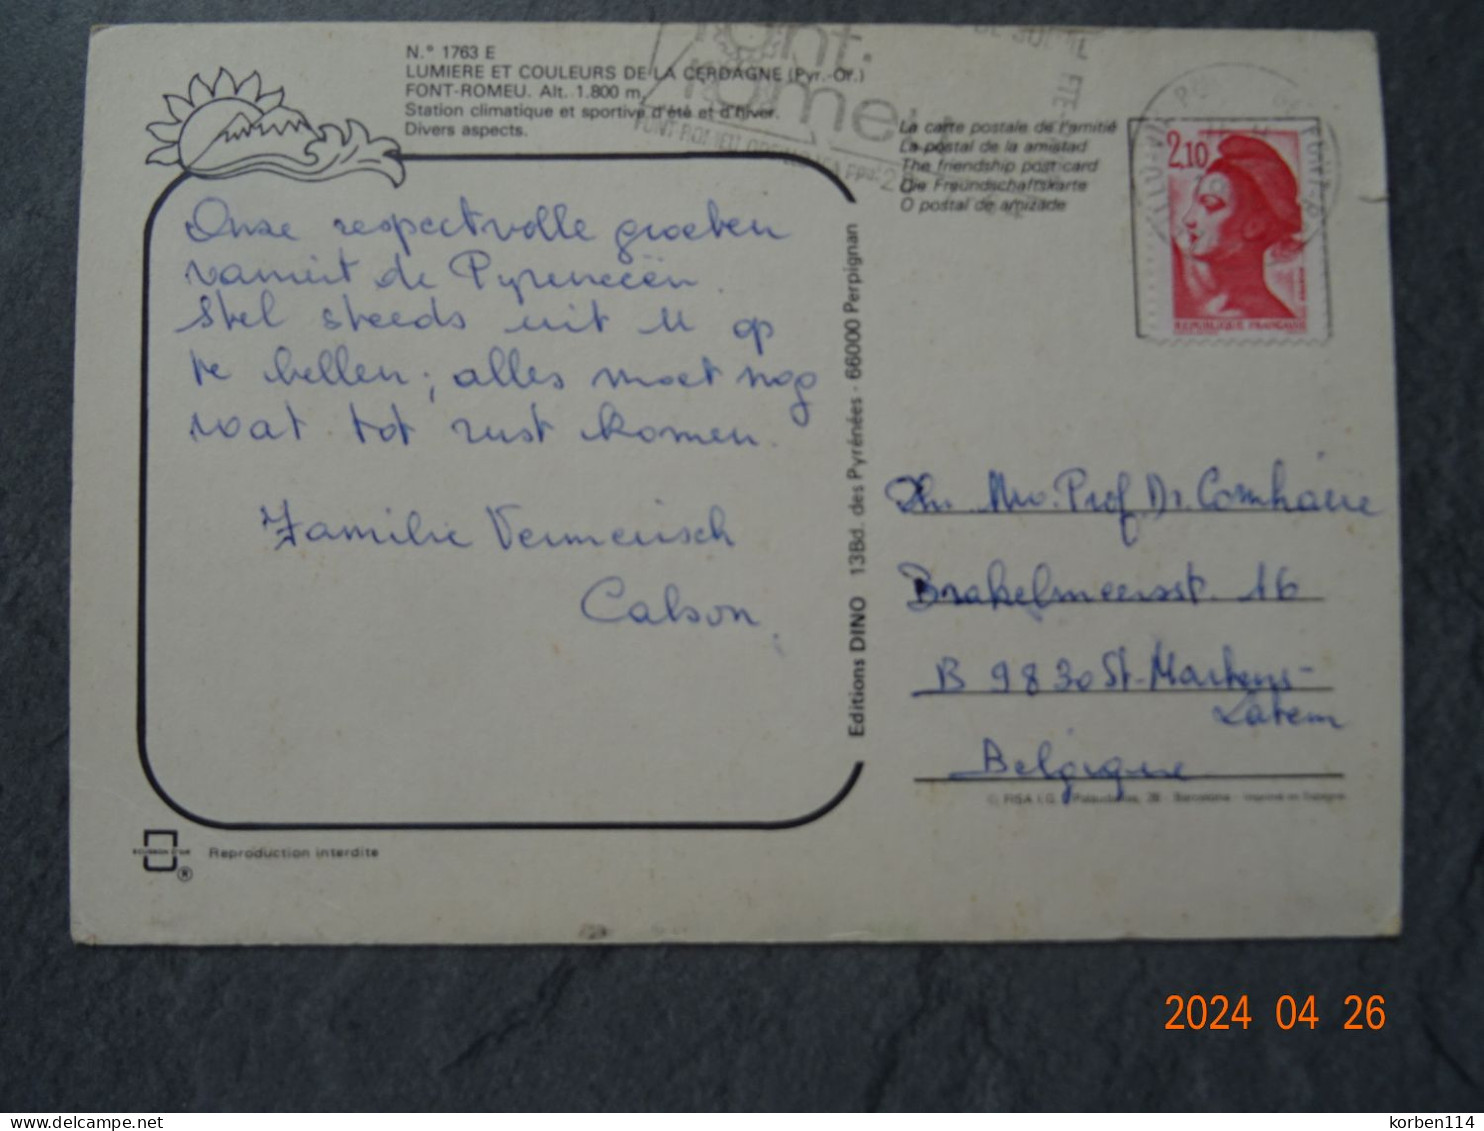 N.° 1763 E
LUMIERE ET COULEURS DE LA CERDAGNE (Pyr.-Or.)
FONT-ROMEU. Alt. 1.800 m.
Station climatique et sportive d'été et d'hiver.
Divers aspects.
La carte postale de l'amitié
La postal de la amistad
The friendship post card
Die Freundschaftskarte
O postal de amizade
2,10
REPUBLIQUE FRANÇAISE
Onze respectvolle groeten
vanuit de Pyreneeën.
Stel steeds uit u op
te bellen; alles moet nog
wat tot rust komen.
Familie Vermeirsch
Calson
Editions DINO 13Bd. des Pyrénées - 66000 Perpignan
Dhr. Mw. Prof Dr. Comhaire
Brakelmeersst. 16
B 9830 St-Martens-
Latem
Belgique
© FISA I.G. Palaudarias, 26 - Barcelona - Imprimé en Espagne
Reproduction interdite
®
2024 04 26
korben114